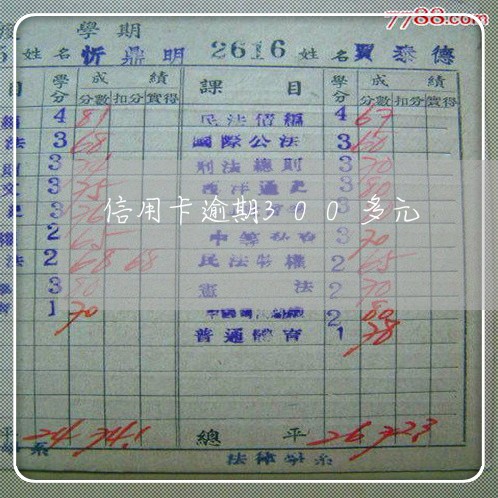 7788.com
學期
姓名 忻鼎明 2616 姓名 賈泰德
目 學分 成績 課目 學分 成績
分數 扣分 實得 分數 扣分 實得
4 81 民法債編 4 67
法 3 68 國際公法 3 60
3 刑法總則 3 70
3 75 西洋通史 3 80
信用卡逾期300多元
2 65 3 70
法 2 68 68 民法物權 2 65
3 80 憲法 2 70
1 70 2 80
普通體育 1 78
平 24 74.1 總平 26 72.3
系 法律學系